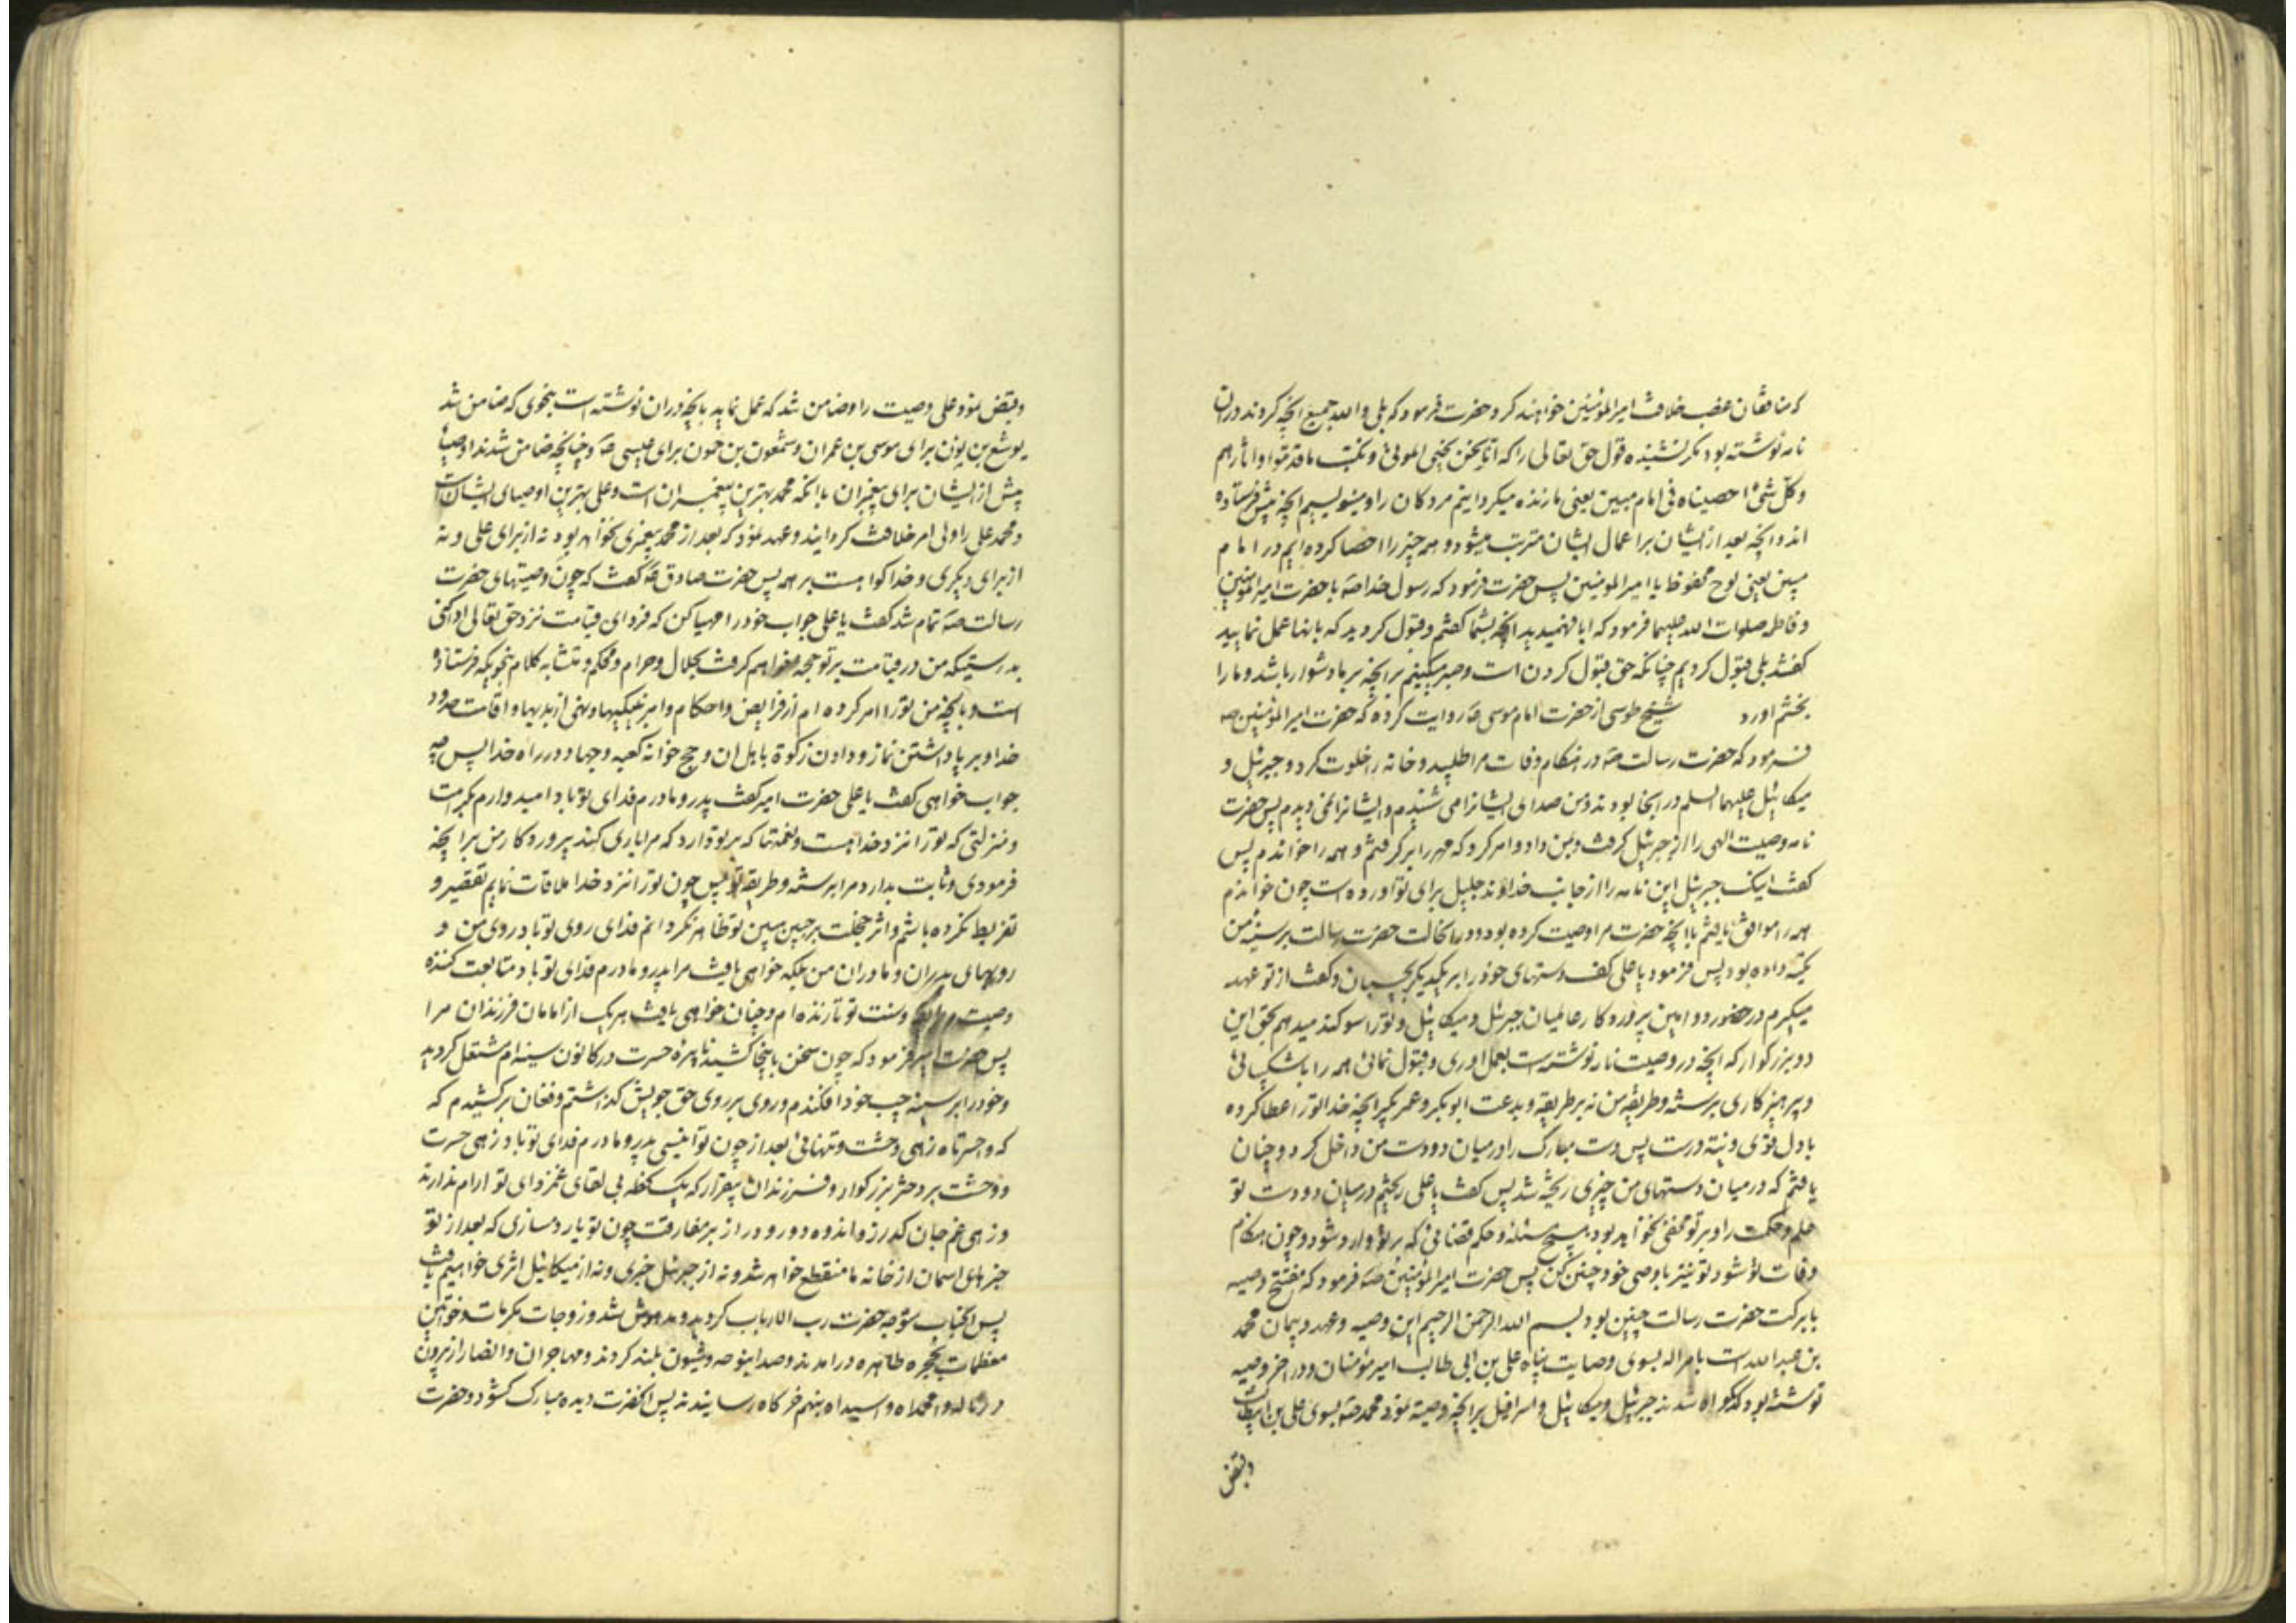 که منافقان غصب خلافت امیرالمؤمنین خواهند کرد حضرت فرمود که بلی والله جمیع انچه کردند در ان
نامه نوشته بود مکر نشنیده قول حق تعالی را که انا نحن نحیی الموتی و نکتب ما قدموا و اثارهم
و کل شیء احصیناه فی امام مبین یعنی ما زنده میکردانیم مردکان را و مینویسیم انچه پیش فرستاده
اند و انچه بعد از ایشان بر اعمال ایشان مترتب میشود و همه چیز را احصا کرده ایم در امام
مبین یعنی لوح محفوظ یا امیرالمومنین پس حضرت فرمود که رسول خدا صه با حضرت امیرالمومنین
و فاطمه صلوات الله علیهما فرمود که ایا فهمیدید انچه بشما کفتم و قبول کردید که بانها عمل نمایید
کفتند بلی قبول کردیم چنانکه حق قبول کردن است و صبر میکنیم بر انچه بر ما دشوار باشد و ما را
بخشم اورد شیخ طوسی از حضرت امام موسی ع روایت کرده که حضرت امیرالمؤمنین صه
فرمود که حضرت رسالت صه در هنکام وفات مرا طلبید و خانه را خلوت کرد و جبرئیل و
میکائیل علیهما السلم در انجا بودند و من صدای ایشانرا می شنیدم و ایشانرا نمی دیدم پس حضرت
نامه وصیت الهی را از جبرئیل کرفت و بمن داد و امر کرد که مهر را بر کرفتم و همه را خواندم پس
کفت اینک جبرئیل این نامه را از جانب خداوند جلیل برای تو اورده است چون خواندم
همه را موافق یافتم با انچه حضرت مرا وصیت کرده بود و در انحالت حضرت رسالت بر سینه من
تکیه داده بود پس فرمود یا علی کف دستهای خود را بر یکدیکر بچسبان و کفت از تو عهد
میکیرم در حضور دو امین پروردکار عالمیان جبرئیل و میکائیل و تو را سوکند میدهم بحق این
دو بزرکوار که انچه در وصیت نامه نوشته است بعمل اوری و قبول نمائی همه را با شکیبائی
و پرهیزکاری بر سنت و طریقه من نه بر طریقه و بدعت ابوبکر و عمر بکیر انچه خدا تو را عطا کرده
با دل قوی و نیة درست پس دست مبارک را در میان دو دست من داخل کرد و چنان
یافتم که در میان دستهای من چیزی ریخته شد پس کفت یا علی ریختم در میان دو دست تو
علم و حکمت را و بر تو مخفی نخواهد بود هیچ مسئله و حکم قضائی که بر تو وارد شود و چون هنکام
وفات تو شود تو نیز با وصی خود چنین کن پس حضرت امیرالمؤمنین صه فرمود که مفتتح وصیه
با برکت حضرت رسالت چنین بود بسم الله الرحمن الرحیم این وصیه و عهد و پیمان محمد
بن عبدالله است بامر اله بسوی وصایت پناه علی بن ابی طالب امیر مؤمنان و در اخر وصیه
نوشته بود که کواه شدند جبرئیل و میکائیل و اسرافیل بر انچه وصیة نمود محمد صه بسوی علی بن ابیطالب
و بقبض
و بقبض نمود علی وصیت را و ضامن شد که عمل نماید بانچه در ان نوشته است بنحوی که ضامن شد
یوشع بن یون برای موسی بن عمران و شمعون بن حون برای عیسی ع و چنانچه ضامن شدند اوصیا
پیش از ایشان برای پیغمبران با انکه محمد بهترین پیغمبران است و علی بهترین اوصیای ایشان است
و محمد علی را ولی امر خلافت کردانید و عهد نمود که بعد از محمد پیغمبری نخواهد بود نه از برای علی و نه
از برای دیکری و خدا کواهست بر همه پس حضرت صادق ع کفت که چون وصیتهای حضرت
رسالت صه تمام شد کفت یا علی جواب خود را مهیا کن که فردای قیامت نزد حق تعالی ادا کنی
بدرستیکه من در قیامت بر تو حجه خواهم کرفت بحلال و حرام و محکم و متشابه کلام بنحویکه فرستاده
است و بانچه من تو را امر کرده ام از فرایض و احکام و امر بنیکیها و نهی از بدیها و اقامت حدود
خدا و بر پا داشتن نماز و دادن زکوة باهل ان و حج خانه کعبه و جهاد در راه خدا پس چه
جواب خواهی کفت یا علی حضرت امیر کفت پدر و مادرم فدای تو باد امیدوارم بکرامت
و منزلتی که تو را نزد خدا هست و نعمتها که بر تو دارد که مرا یاری کند پروردکار من بر انچه
فرمودی و ثابت بدارد مرا بر سنت و طریقه تو پس چون تو را نزد خدا ملاقات نمایم تقصیر و
تفریط نکرده باشم و اثر خجلت بر جبین مبین تو ظاهر نکردانم فدای روی تو باد روی من و
رویهای پدران و مادران من بلکه خواهی یافت مرا پدر و مادرم فدای تو باد متابعت کننده
وصیت و طریقه و سنت تو تا زنده ام و چنان خواهی یافت هر یک از امامان فرزندان مرا
پس حضرت امیر فرمود که چون سخن باینجا کشید نایره حسرت در کانون سینه ام مشتعل کردید
و خود را بر سینه حبیب خود افکندم و روی بر روی حق جویش کذاشتم و فغان برکشیدم که
که واحسرتاه زهی وحشت و تنهائی بعد از چون تو انیسی پدر و مادرم فدای تو باد زهی حسرت
و وحشت بر دختر بزرکوار و فرزندان بیقرار که یک لحظه بی لقای غمزدای تو ارام ندارند
و زهی غم جان کداز و اندوه دور و دراز بر مفارقت چون تو یار دمسازی که بعد از تو
خبرهای اسمان از خانه ما منقطع خواهد شد و نه از جبرئیل خبری و نه از میکائیل اثری خواهیم یافت
پس انجناب متوجه حضرت رب الارباب کردید و مدهوش شد و زوجات مکرمات و خواتین
معظمات بحجره طاهره در امدند و صدا بنوحه و شیون بلند کردند و مهاجران و انصار از برون
در ناله وامحمداه واسیداه بنهم خرکاه رسانیدند پس انحضرت دیده مبارک کشود و حضرت